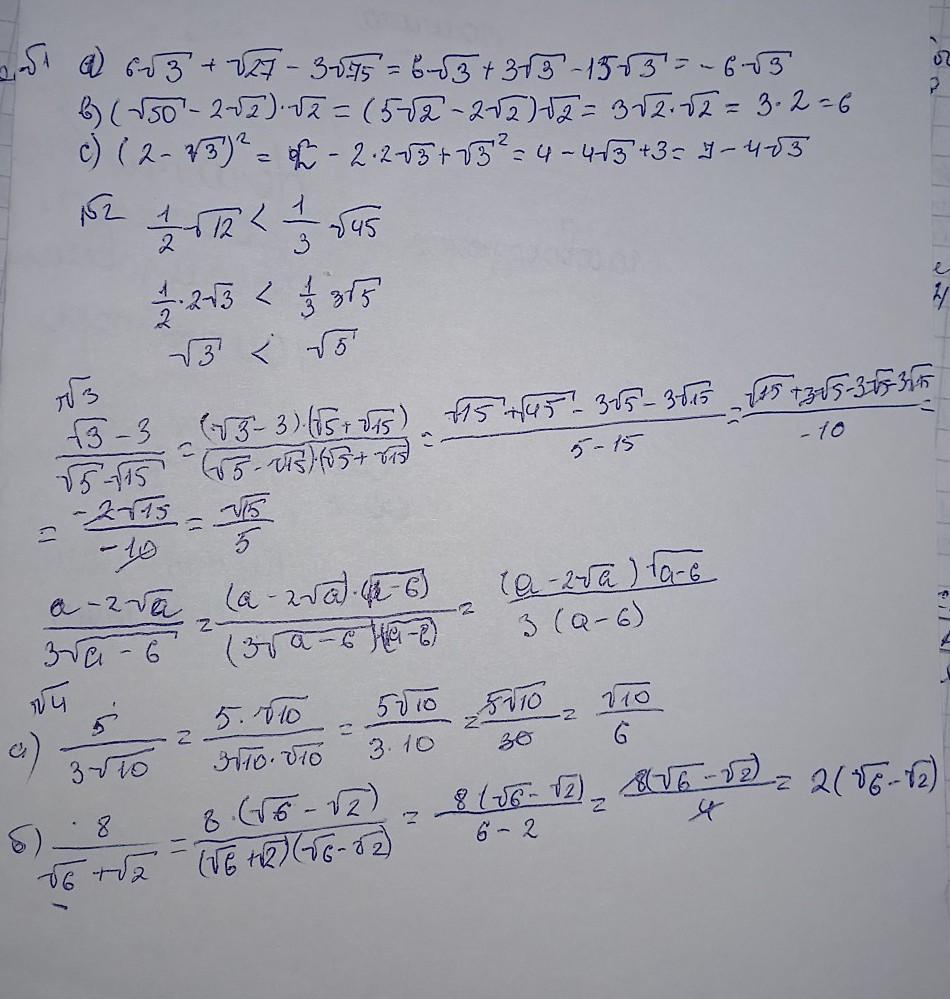 №1 а) 6√3 + √27 - 3√75 = 6√3 + 3√3 - 15√3 = - 6√3
в) (√50 - 2√2)·√2 = (5√2 - 2√2)√2 = 3√2·√2 = 3·2 = 6
с) (2 - √3)² = 2² - 2·2√3 + √3² = 4 - 4√3 + 3 = 7 - 4√3
№2 1/2 √12 < 1/3 √45
1/2 · 2√3 < 1/3 3√5
√3 < √5
№3
(√3 - 3)/(√5 - √15) = ((√3 - 3)·(√5 + √15))/((√5 - √15)(√5 + √15)) = (√15 + √45 - 3√5 - 3√15)/(5 - 15) = (√15 + 3√5 - 3√5 - 3√15)/(-10) =
= (-2√15)/(-10) = √15/5
(a - 2√a)/(3√a - 6) = ((a - 2√a)·(√a - 6))/((3√a - 6)(√a - 6)) = ((a - 2√a)√a - 6)/(3(a - 6))
№4
а) 5/(3√10) = (5·√10)/(3√10·√10) = (5√10)/(3·10) = (5√10)/30 = √10/6
б) 8/(√6 + √2) = (8·(√6 - √2))/((√6 + √2)(√6 - √2)) = (8(√6 - √2))/(6 - 2) = (8(√6 - √2))/4 = 2(√6 - √2)